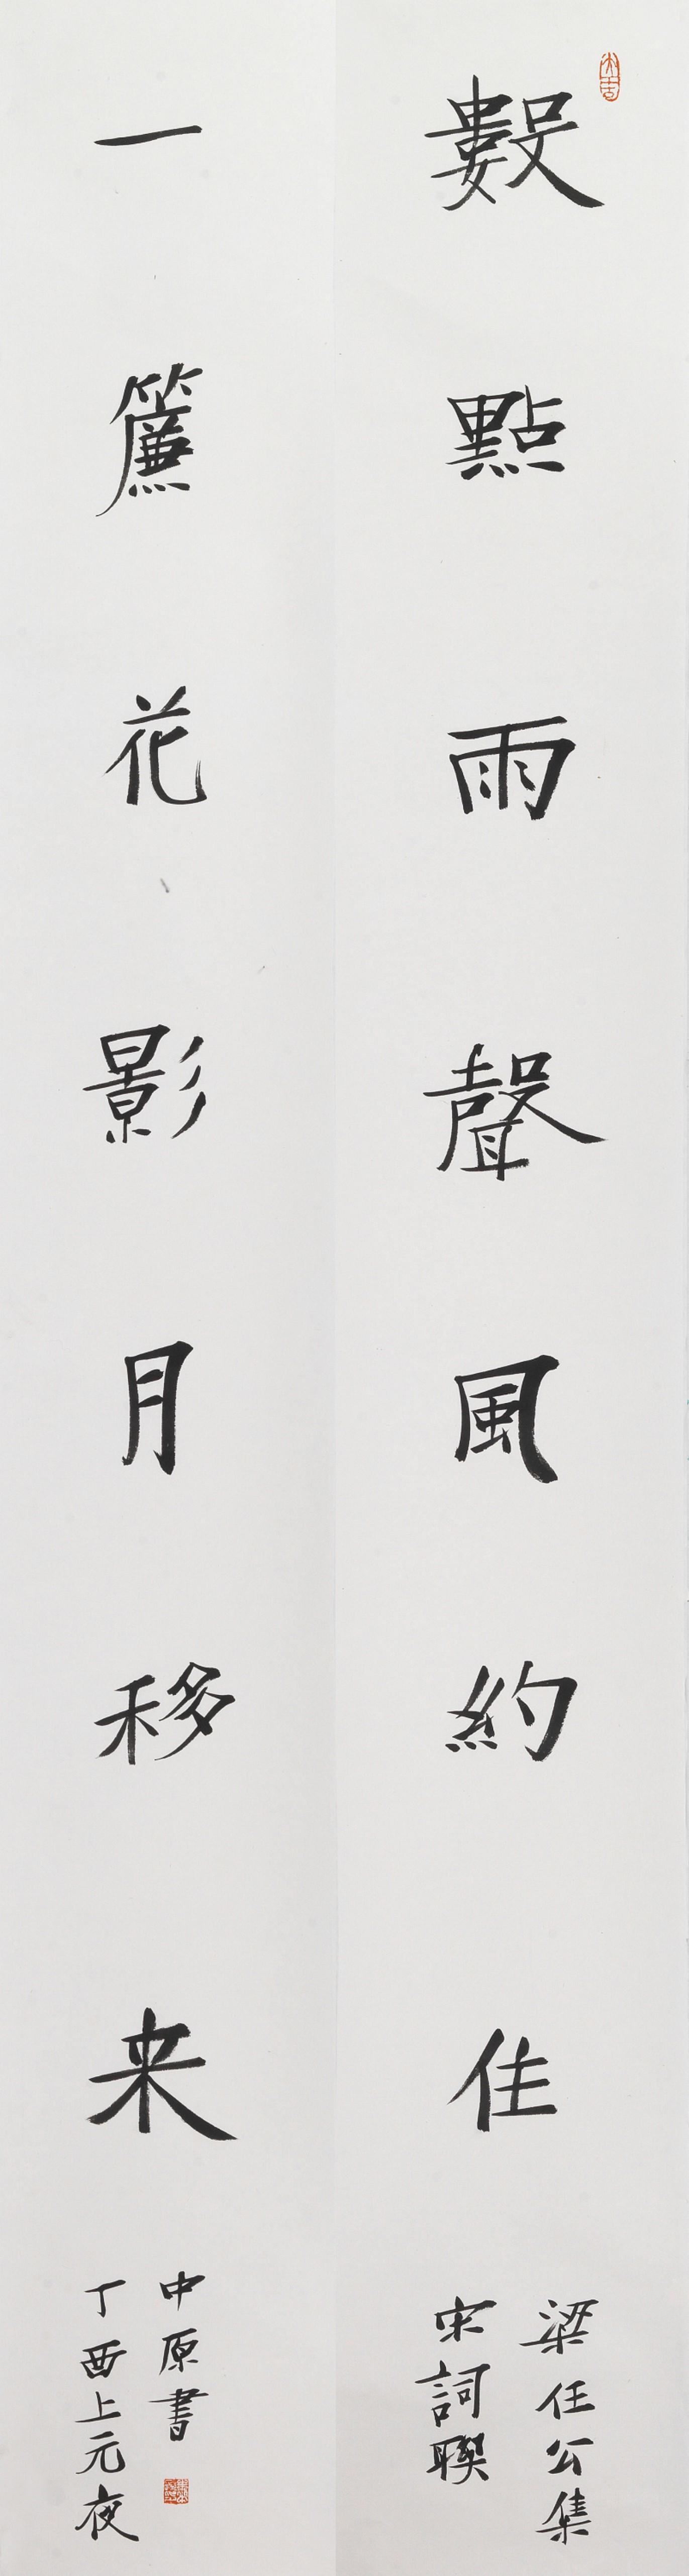 數點雨聲風約住
梁任公集
宋詞聯
一簾花影月移来
中原書
丁酉上元夜